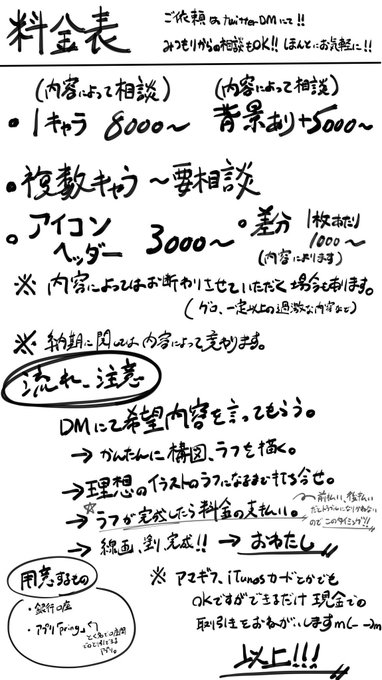 料金表
ご依頼はtwitterDMにて!!
みつもりからの相談もOK!! ほんとにお気軽に!!
(内容によって相談)
・1キャラ 8000~
(内容によって相談)
背景あり+5000~
・複数キャラ ~要相談
・アイコン
ヘッダー
3000~
・差分 1枚あたり
1000~
(内容によります)
※ 内容によってはお断りさせていただく場合もあります。
(グロ、一定以上の過激な内容など)
※ 納期に関しては内容によって変わります。
流れ、注意
DMにて希望内容を言ってもらう。
→ かんたんに構図、ラフを描く。
→理想のイラストのラフになるまで打ち合せ。
→ラフが完成したら料金の支払い。
前払い、後払い
だとトラブルになりかねない
のでこのタイミング!!
→ 線画、塗り、完成!! → おわたし
用意するもの
・銀行口座
・アプリ「pring」
※ アマギフ、iTunesカードとかでも
OKですができるだけ 現金での
取引きをおねがいしますm(--)m
以上!!!